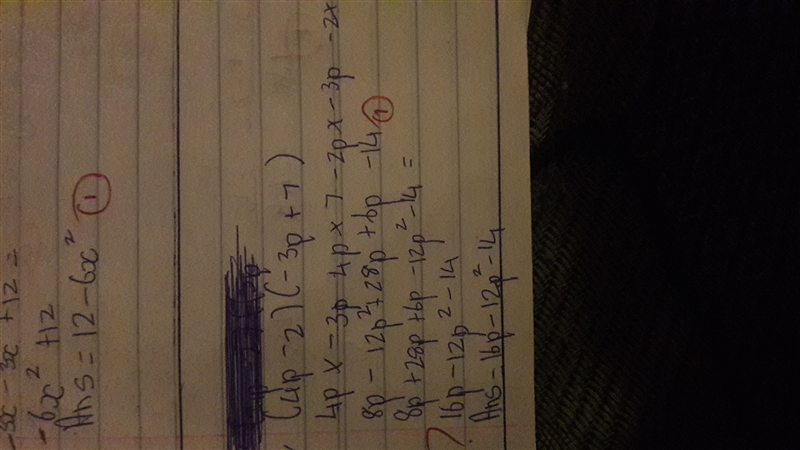 -3x - 3x + 12 =
- 6x² + 12
Ans = 12 - 6x² (1)
(4p - 2) (-3p + 7)
4p x - 3p 4p x 7 - 2p x - 3p - 2x
8p - 12p² + 28p + 6p - 14 (1)
8p + 28p + 6p - 12p² - 14 =
16p - 12p² - 14
Ans - 16p - 12p² - 14